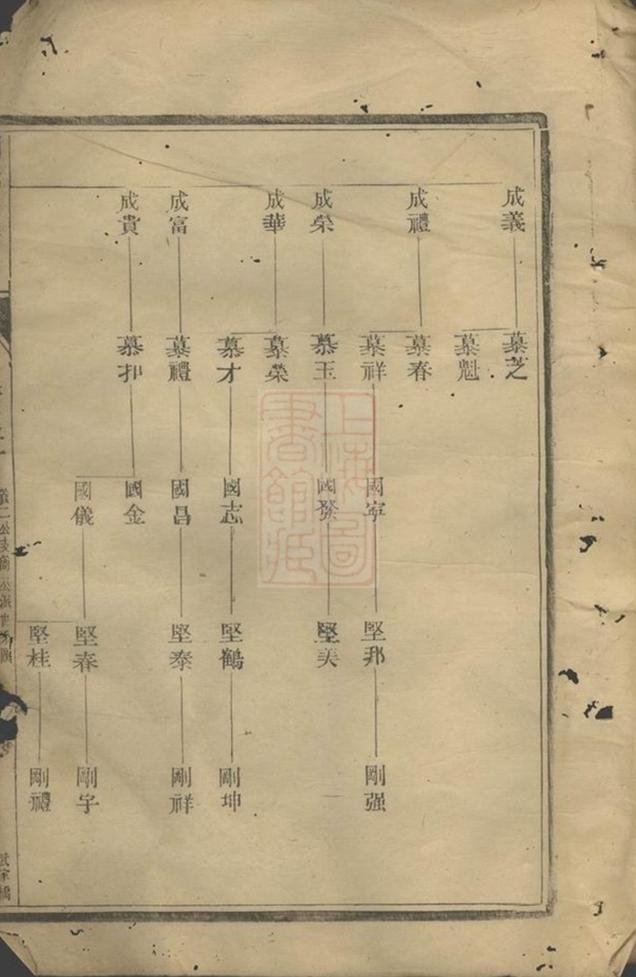 成義
成禮
成榮
成華
成富
成貴
慕芝
慕魁
慕春
慕祥
慕玉
慕榮
慕才
慕禮
慕扣
國寧
國發
國志
國昌
國金
國儀
堅邦
堅美
堅鶴
堅泰
堅春
堅桂
剛强
剛坤
剛祥
剛宇
剛禮
上海圖
書館藏